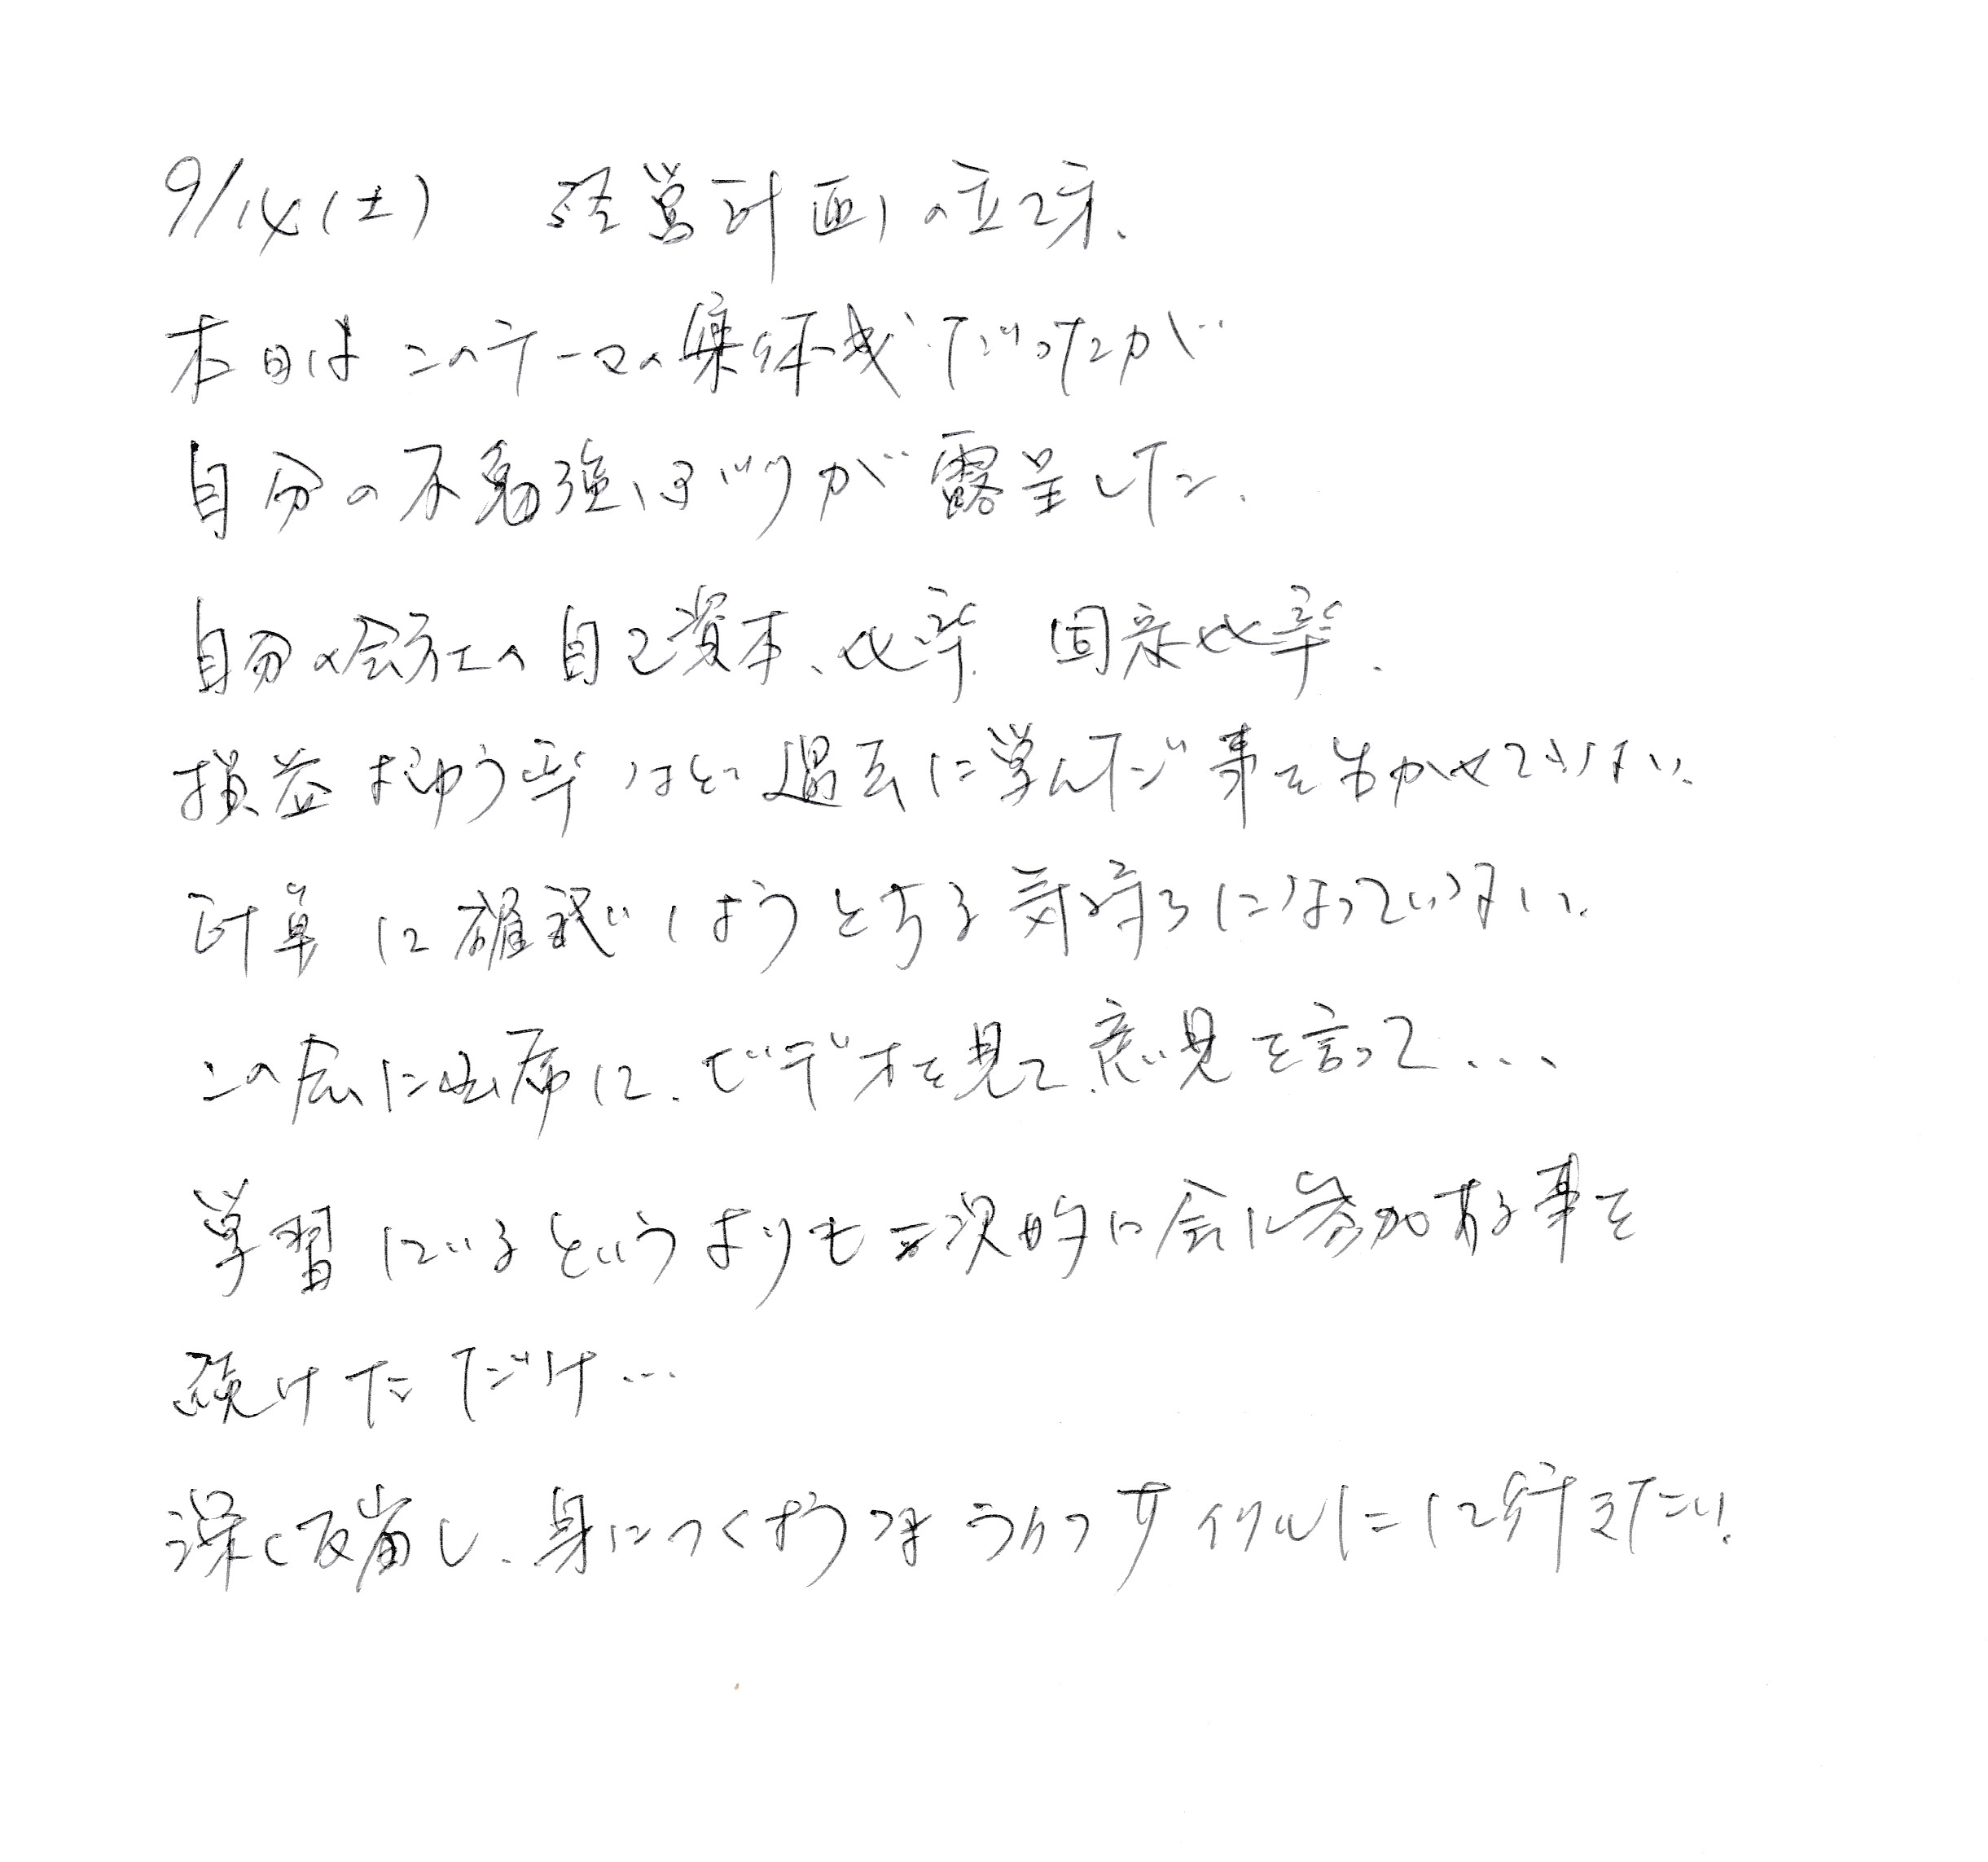 9/14(土) 経営計画の立て方、
本日はこのテーマの集体成だったが
自分の不勉強ばかりが露呈した、
自分の会社の自己資本、比率、固定比率、
損益よゆう率など過去に学んだ事を生かせていない、
計算して確認しようとする気持ちになっていない、
この会に出席して、ビデオを見て、意見を言って...
学習しているというよりも二次的に会に参加する事を
続けただけ...
深く反省し、身につくような サイクルにして行きたい!